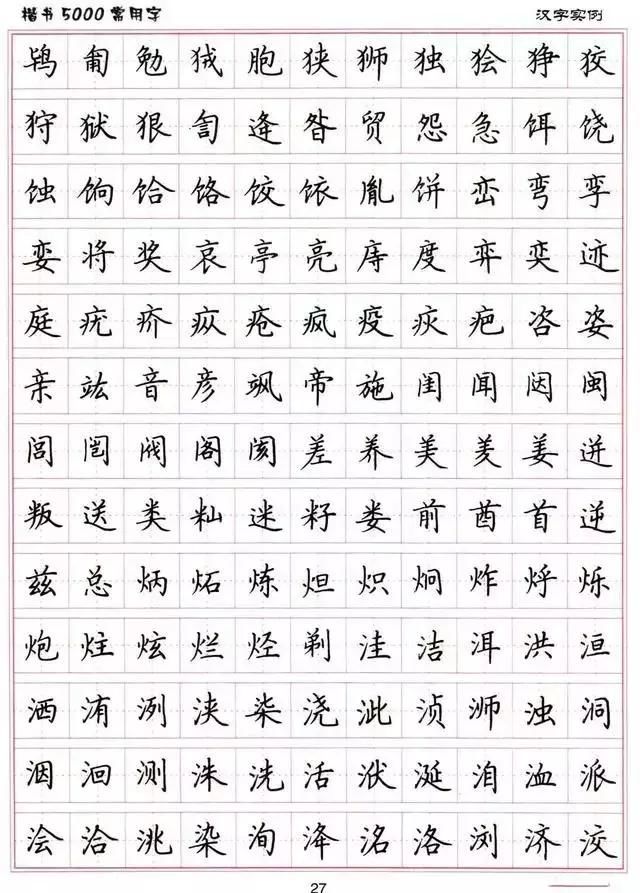 楷书5000常用字 汉字实例
鸨 匍 勉 狨 胞 狭 狮 独 狯 狰 狡
狩 狱 狠 訇 逄 昝 贸 怨 急 饵 饶
蚀 饷 饸 饹 饺 饻 胤 饼 峦 弯 孪
娈 将 奖 哀 亭 亮 庤 度 弈 奕 迹
庭 疣 疥 疭 疮 疯 疫 疢 疤 咨 姿
亲 竑 音 彦 飒 帝 施 闺 闻 闼 闽
闾 闿 阀 阁 阂 差 养 美 羑 姜 迸
叛 送 类 籼 迷 籽 娄 前 酋 首 逆
兹 总 炳 炻 炼 炟 炽 炯 炸 烀 烁
炮 炷 炫 烂 烃 剃 洼 洁 洱 洪 洹
洒 洧 洌 浃 柒 浇 泚 浈 浉 浊 洞
洇 洄 测 洙 洗 活 洑 涎 洎 洫 派
浍 洽 洮 染 洵 洚 洺 洛 浏 济 洨
27